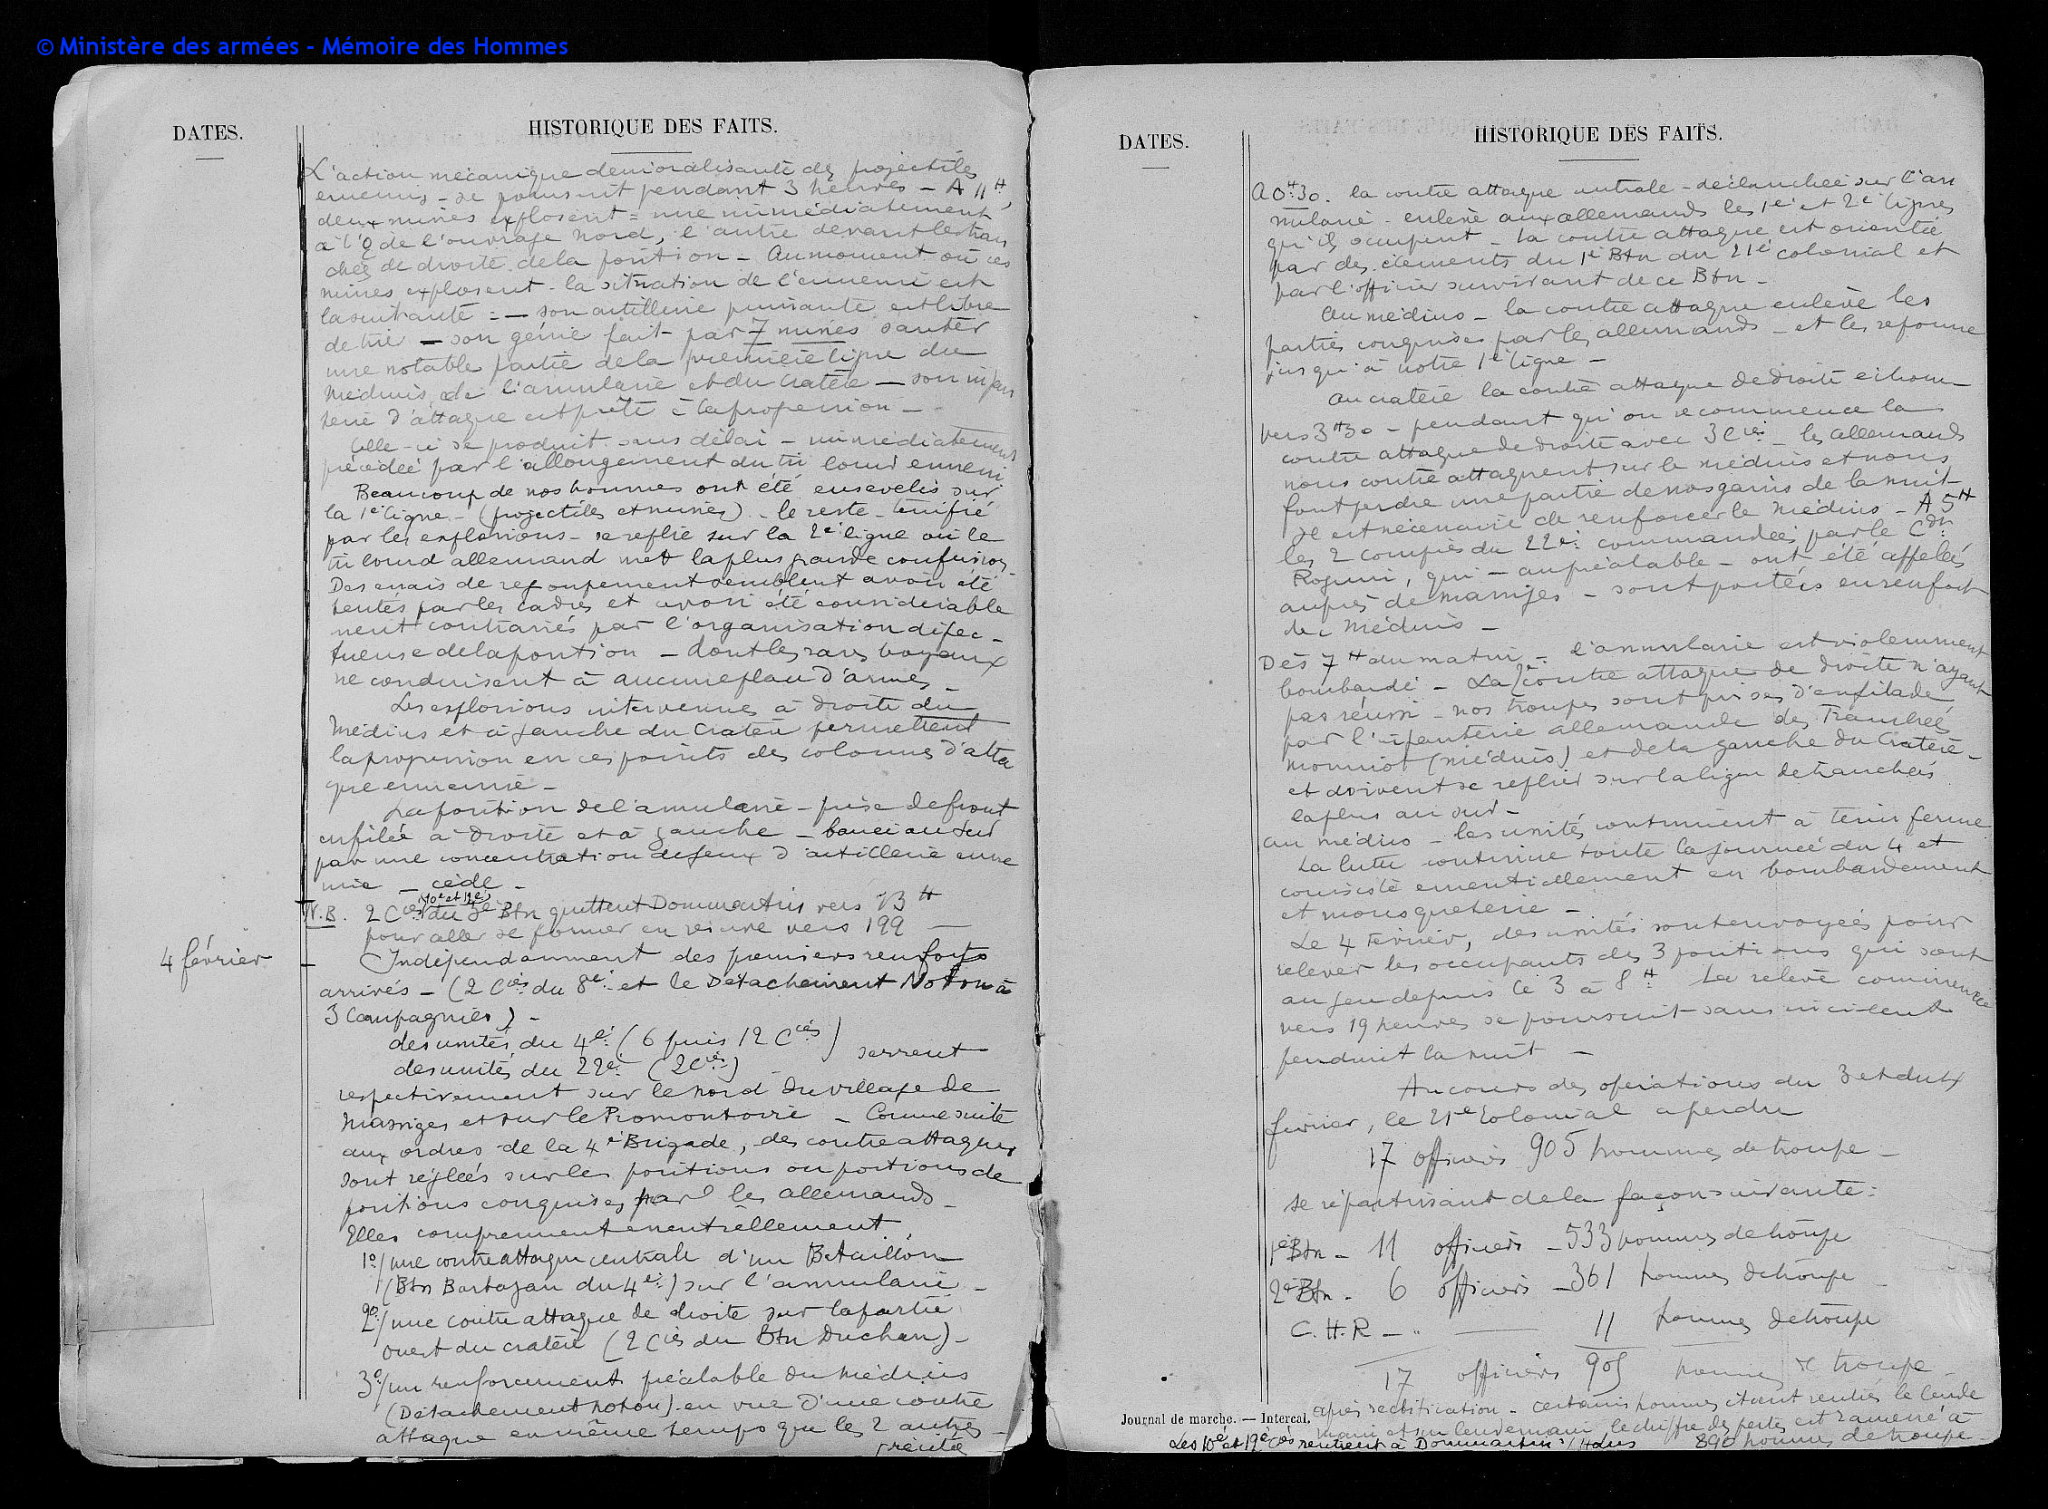 © Ministère des armées - Mémoire des Hommes
DATES.
HISTORIQUE DES FAITS.
L'action mécanique démoralisante des projectiles
ennemis - se poursuit pendant 3 heures - A 11H,
deux mines explosent = une immédiatement
à l'O de l'ouvrage nord, l'autre devant les tran
chées de droite de la position - Au moment où ces
mines explosent - la situation de l'ennemi est
la suivante : - son artillerie puissante est libre
de tir - son génie fait par 7 mines sauter
une notable partie de la première ligne du
Médius, de l'annulaire et du cratère - son infan
terie d'attaque est prête à la progression -
Celle-ci se produit sans délai - immédiatement
précédée par l'allongement du tir lourd ennemi
Beaucoup de nos hommes ont été ensevelis sur
la 1e ligne - (projectiles et mines) - le reste terrifié
par les explosions - se replie sur la 2e ligne où le
tir lourd allemand met la plus grande confusion -
Des essais de regroupement semblent avoir été
tentés par les cadres et avoir été considérable
ment contrariés par l'organisation défec -
tueuse de la position - dont les rares boyaux
ne conduisent à aucune place d'armes -
Les explosions intervenues à droite du
Médius et à gauche du cratère permettent
la progression en ces points des colonnes d'atta
que ennemie -
La position de l'annulaire - prise de front
enfilée à droite et à gauche - au sud
par une concentration de feux d'artillerie enne
mie - cède -
N.B. 2 Cies (10e et 12e) du 3e Btn quittent Dommartin vers 23H
pour aller se former en réserve vers 199 -
4 février
Indépendamment des premiers renforts
arrivés - (2 Cies du 8e et le Détachement Noton à
3 Compagnies) -
des unités du 4e (6 puis 12 Cies)
des unités du 22e (2 Cies) serrent
respectivement sur le nord du village de
Massiges et sur le Promontoire - Comme suite
aux ordres de la 4e Brigade, des contre attaques
sont réglées sur les positions ou portions de
positions conquises par les allemands -
Elles comprennent essentiellement
1o/ une contre attaque centrale d'un Bataillon
(Btn Barbazan du 4e) sur l'annulaire -
2o/ une contre attaque de droite sur la partie
ouest du cratère (2 Cies du Btn Duchan) -
3o/ un renforcement préalable du médius
(Détachement Noton) en vue d'une contre
attaque en même temps que les 2 autres -
DATES.
HISTORIQUE DES FAITS.
A 0H30. la contre attaque centrale - déclanchée sur l'an
nulaire - enlève aux allemands les 1e et 2e lignes
qu'ils occupent - La contre attaque est orientée
par des éléments du 1e Btn du 21e colonial et
par l'officier survivant de ce Btn -
Au médius - la contre attaque enlève les
parties conquises par les allemands - et les refoule
jusqu'à notre 1e ligne -
Au cratère la contre attaque de droite échoue -
vers 3H30 - pendant qu'on recommence la
contre attaque de droite avec 3 Cies - les allemands
nous contre attaquent sur le médius et nous
font perdre une partie de nos gains de la nuit -
Il est nécessaire de renforcer le médius - A 5H
les 2 compies du 22e commandées par le Cdt
qui - au préalable - ont été appelées
auprès de Massiges - sont portées en renfort
du Médius -
Dès 7H du matin - l'annulaire est violemment
bombardé - La 2e contre attaque de droite n'ayant
pas réussi - nos troupes sont prises d'enfilade
par l'infanterie allemande des Tranchées
(médius) et de la gauche du Cratère -
et doivent se replier sur la ligne de tranchées
la plus au sud -
au médius - les unités continuent à tenir ferme
La lutte continue toute la journée du 4 et
consiste essentiellement en bombardement
et mousqueterie -
Le 4 février, des unités sont envoyées pour
relever les occupants des 3 positions qui sont
au feu depuis le 3 à 8H. La relève commencée
vers 19 heures se poursuit sans incident
pendant la nuit -
Au cours des opérations du 3 et du 4
février, le 21e Colonial a perdu
17 officiers 905 hommes de troupe -
se répartissant de la façon suivante :
1e Btn - 11 officiers - 533 hommes de troupe
2e Btn - 6 officiers - 361 hommes de troupe
C.H.R - " 11 hommes de troupe
17 officiers 905 hommes de troupe
après rectification - certains hommes étant rentrés le lende
main et surlendemain le chiffre des pertes est ramené à
890 hommes de troupe -
Journal de marche. — Intercal.
Les 10e et 12e Cies rentrent à Dommartin s/Hans